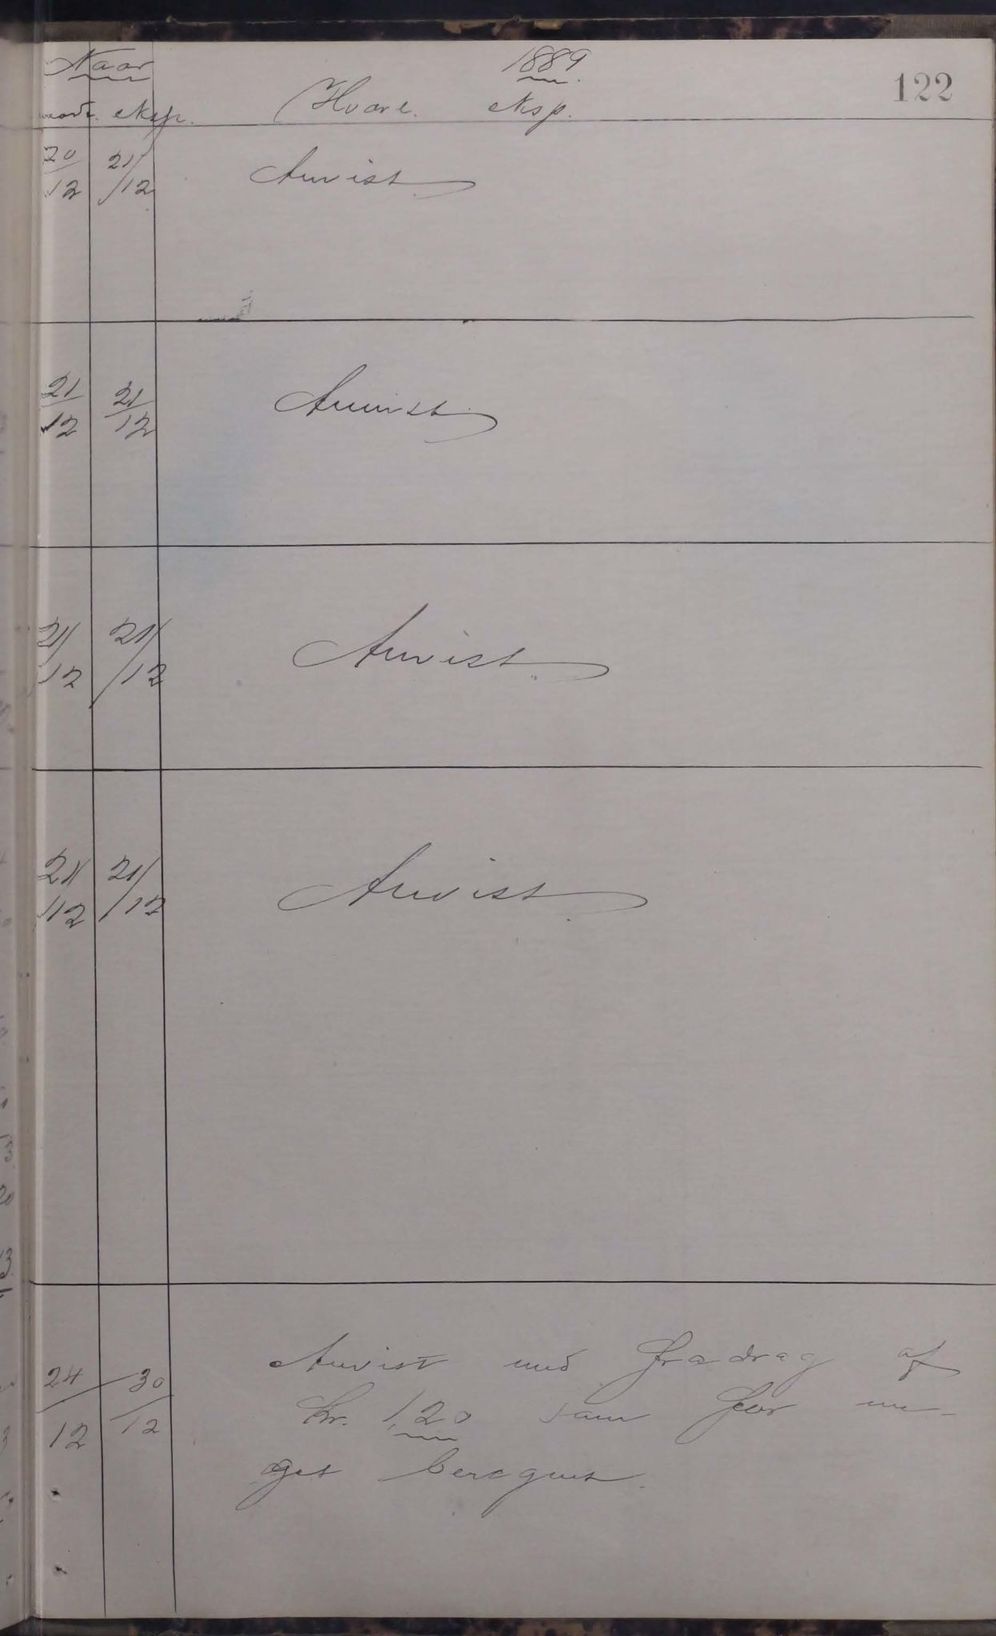 Naar 1889. 122
modt. eksp. Hvorl. eksp.
20/12 21/12 Anvist
21/12 21/12 Anvist.
21/12 21/12 Anvist.
21/12 21/12 Anvist.
24/12 30/12 Anvist med Fradrag af
Kr. 1,20 som for me-
get beregnet.